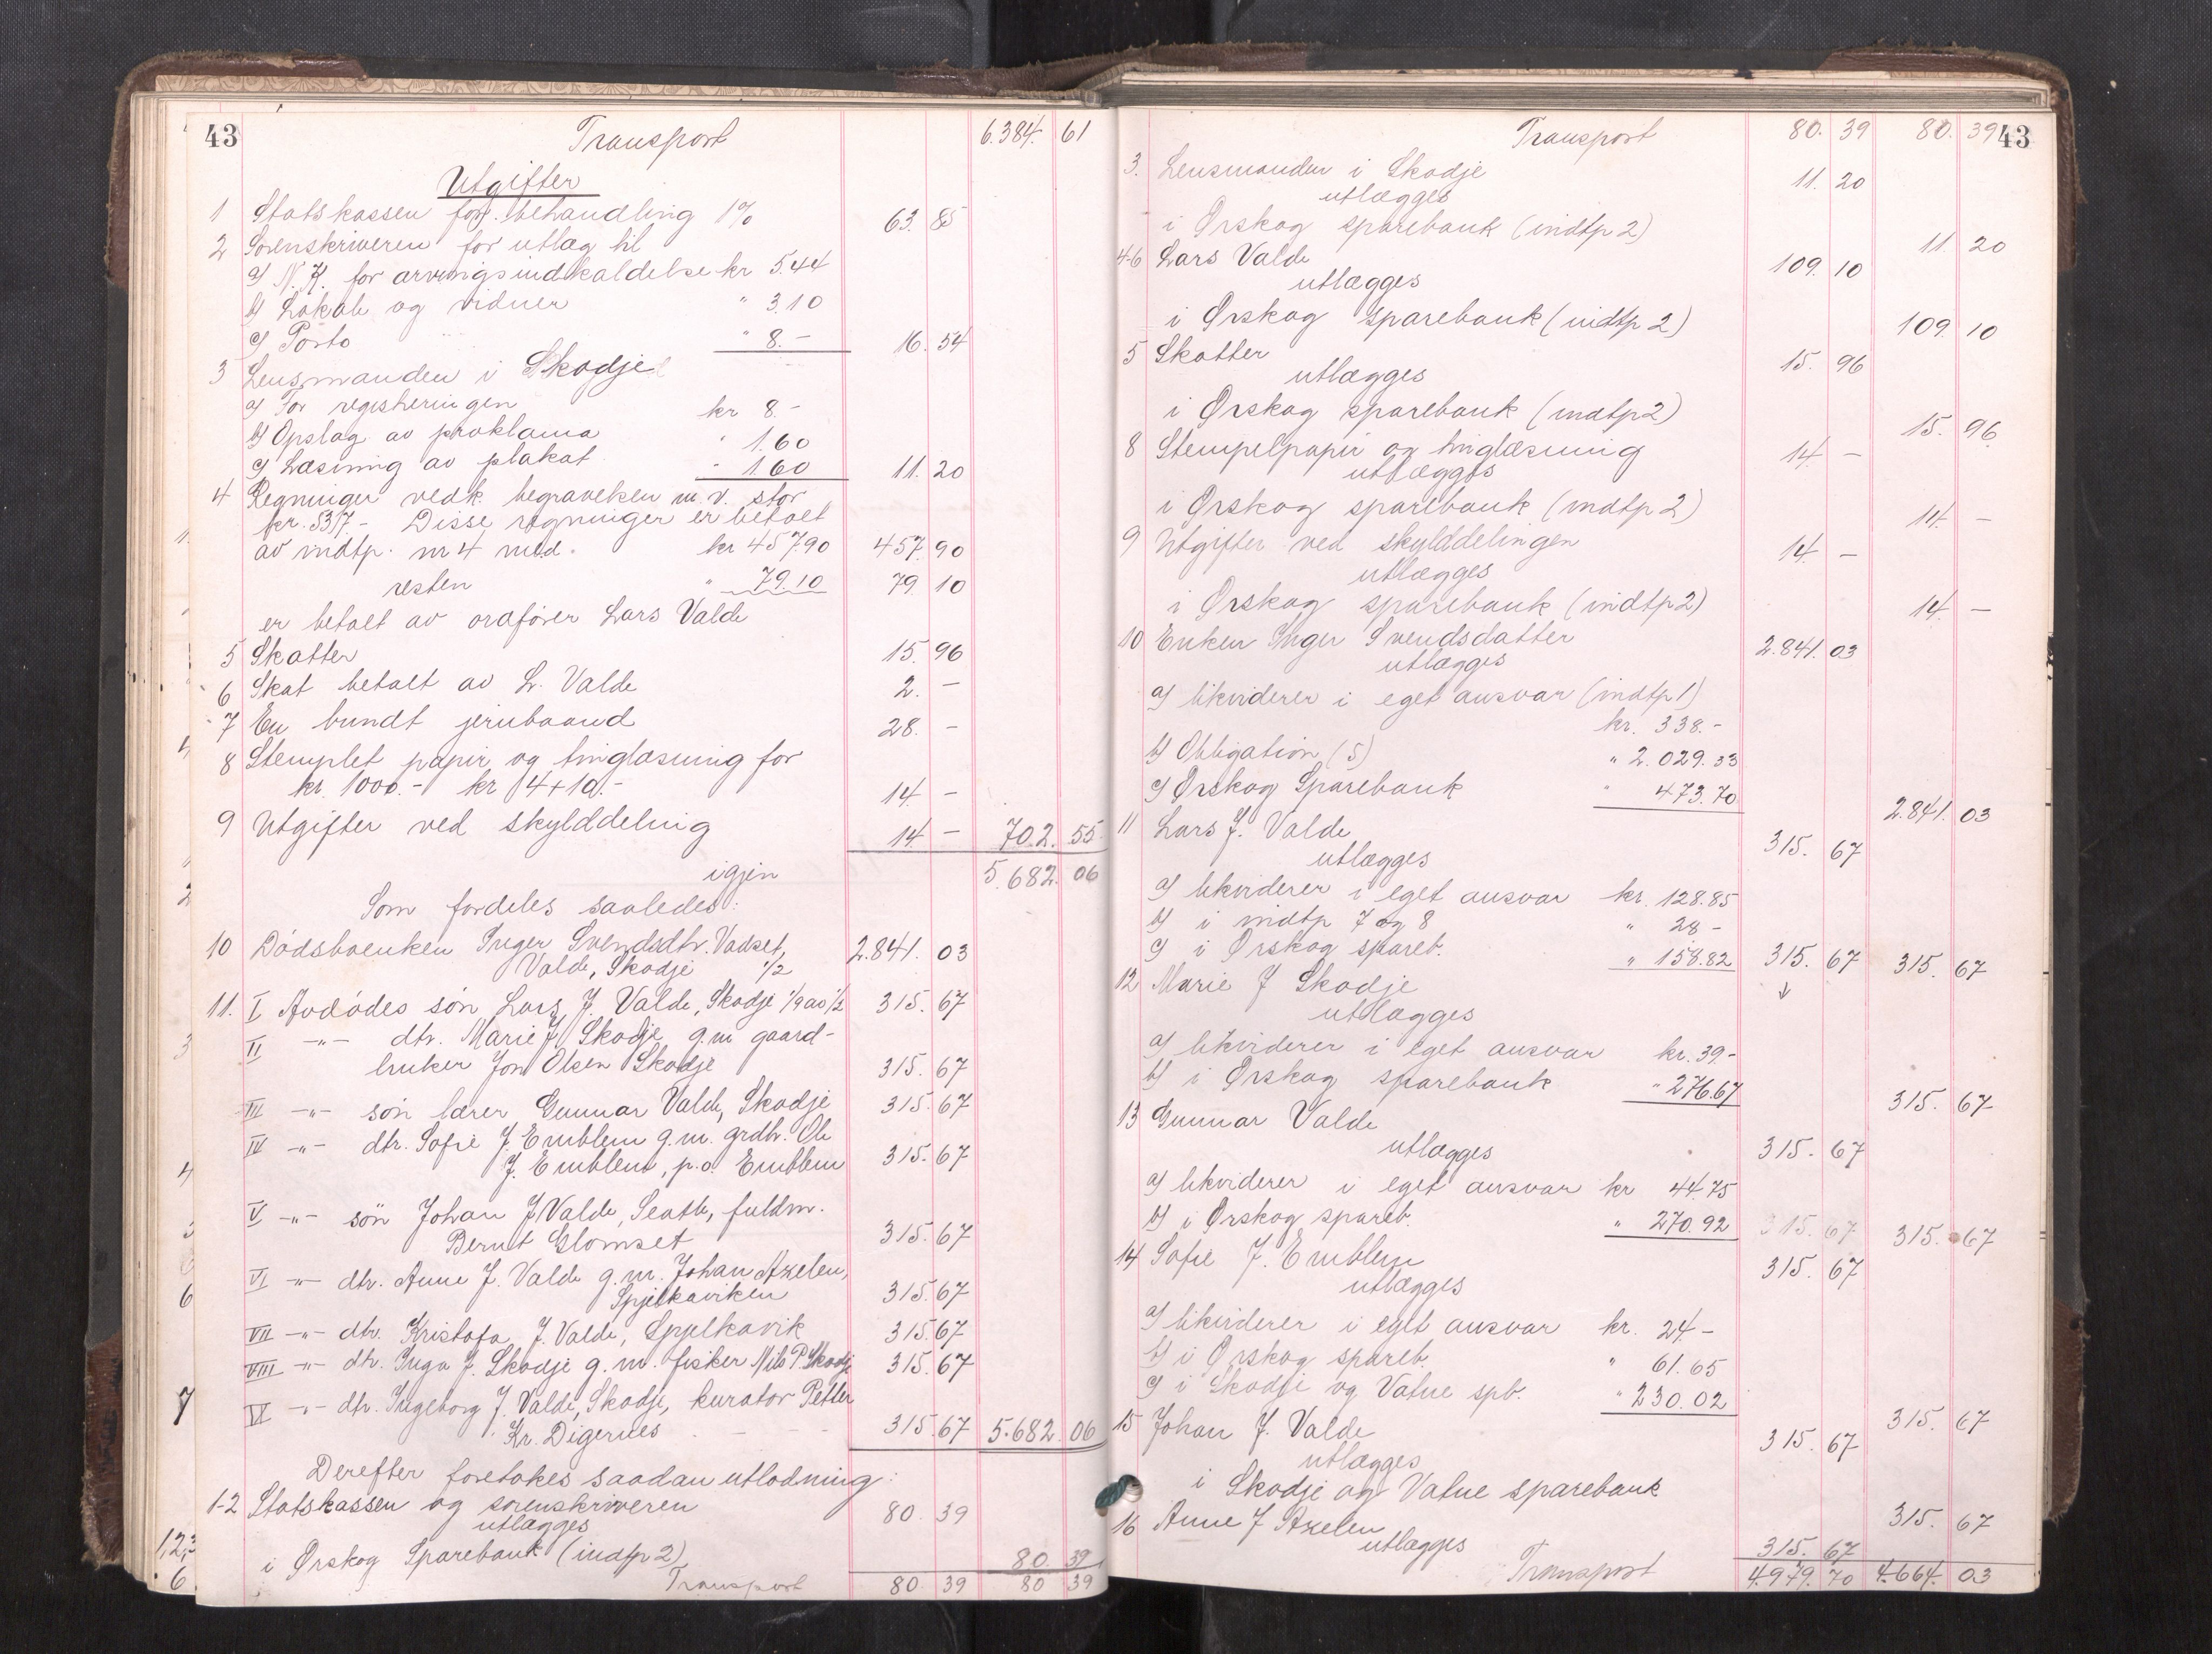 43 Transport 6.384. 61
Utgifter
1 Statskassen for behandling 1% 63. 85
2 Sorenskriveren for utlæg til
a) N. K. for arvingsindkaldelse kr 5.44
b) Lokale og vidner " 3.10
c) Porto " 8.- 16. 54
3 Lensmanden i Skodje
a) For registeringen kr 8.-
b) Opslag av proklama " 1.60
c) Læsning av plakat " 1.60 11. 20
4 Regninger vedk. begravelsen m.v. stor
kr. 537.- Disse regninger er betalt
av indtp. nr 4 med kr 457.90 457. 90
resten " 79.10 79. 10
er betalt av ordfører Lars Valde
5 Skatter 15. 96
6 Skat betalt av L. Valde 2. -
7 En bundt jernbaand 28. -
8 Stemplet papir og tinglæsning for
kr. 1000.- kr 4+10.- 14. -
9 Utgifter ved skylddeling 14. - 702. 55
igjen 5.682. 06
Som fordeles saaledes:
10 Dødsboenken Inger Svendsdtr. Vadset,
Valde, Skodje 1/2 2.841. 03
11. I Avdødes søn Lars J. Valde, Skodje 1/9 av 1/2 315. 67
II -"- dtr. Marie J. Skodje g.m gaard-
bruker Jon Olsen Skodje 315. 67
III -"- søn lærer Gunnar Valde, Skodje 315. 67
IV -"- dtr. Sofie J. Emblem g.m. grdbr. Ole
J. Emblem, p.a. Emblem 315. 67
V -"- søn Johan J. Valde, Seatle, fuldm.
Bernt Glomset 315. 67
VI -"- dtr. Anne J. Valde g.m. Johan Axelsen,
Spjelkaviken 315. 67
VII -"- dtr. Kristofa J. Valde, Spjelkavik 315. 67
VIII -"- dtr. Inga J. Skodje g.m. fisker Nils P. Skodje 315. 67
IX -"- dtr. Ingeborg J. Valde, Skodje, kurator Petter
Kr. Digernes 315. 67 5.682. 06
Derefter foretakes saadan utlodning:
1-2 Statskassen og sorenskriveren 80. 39
utlægges
i Ørskog Sparebank (indtp 2) 80. 39
Transport 80. 39 80 39
Transport 80. 39 80. 39 43
3. Lensmanden i Skodje 11. 20
utlægges
i Ørskog sparebank (indtp 2) 11. 20
4-6 Lars Valde 109. 10
utlægges
i Ørskog sparebank (indtp 2) 109. 10
5 Skatter 15. 96
utlægges
i Ørskog sparebank (indtp 2) 15. 96
8 Stempelpapir og tinglæsning 14. -
utlægges
i Ørskog sparebank (indtp 2) 14. -
9 Utgifter ved skylddelingen 14. -
utlægges
i Ørskog sparebank (indtp 2) 14. -
10 Enken Inger Svendsdatter 2.841. 03
utlægges
a) likviderer i eget ansvar (indtp 1)
kr. 338.-
b) Obligation (5) " 2.029.33
c) Ørskog Sparebank " 473.70 2.841. 03
11 Lars J. Valde 315. 67
utlægges
a) likviderer i eget ansvar kr. 128.85
b) i indtp 7 og 8 " 28 -
c) i Ørskog spareb. " 158.82 315. 67 315. 67
12 Marie J Skodje
utlægges
a) likviderer i eget ansvar kr. 39.-
b) i Ørskog sparebank " 276.67 315. 67
13 Gunnar Valde 315. 67
utlægges
a) likviderer i eget ansvar kr 44.75
b) i Ørskog spareb. " 270.92 315. 67 315. 67
14 Sofie J. Emblem 315. 67
utlægges
a) likviderer i eget ansvar kr. 24.-
b) i Ørskog spareb. " 61.65
c) i Skodje og Vatne spb. " 230.02 315. 67
15 Johan J. Valde 315. 67
utlægges
i Skodje og Vatne sparebank 315. 67
16 Anne J Axelsen
utlægges 315. 67
Transport 4.979. 70 4.664. 03